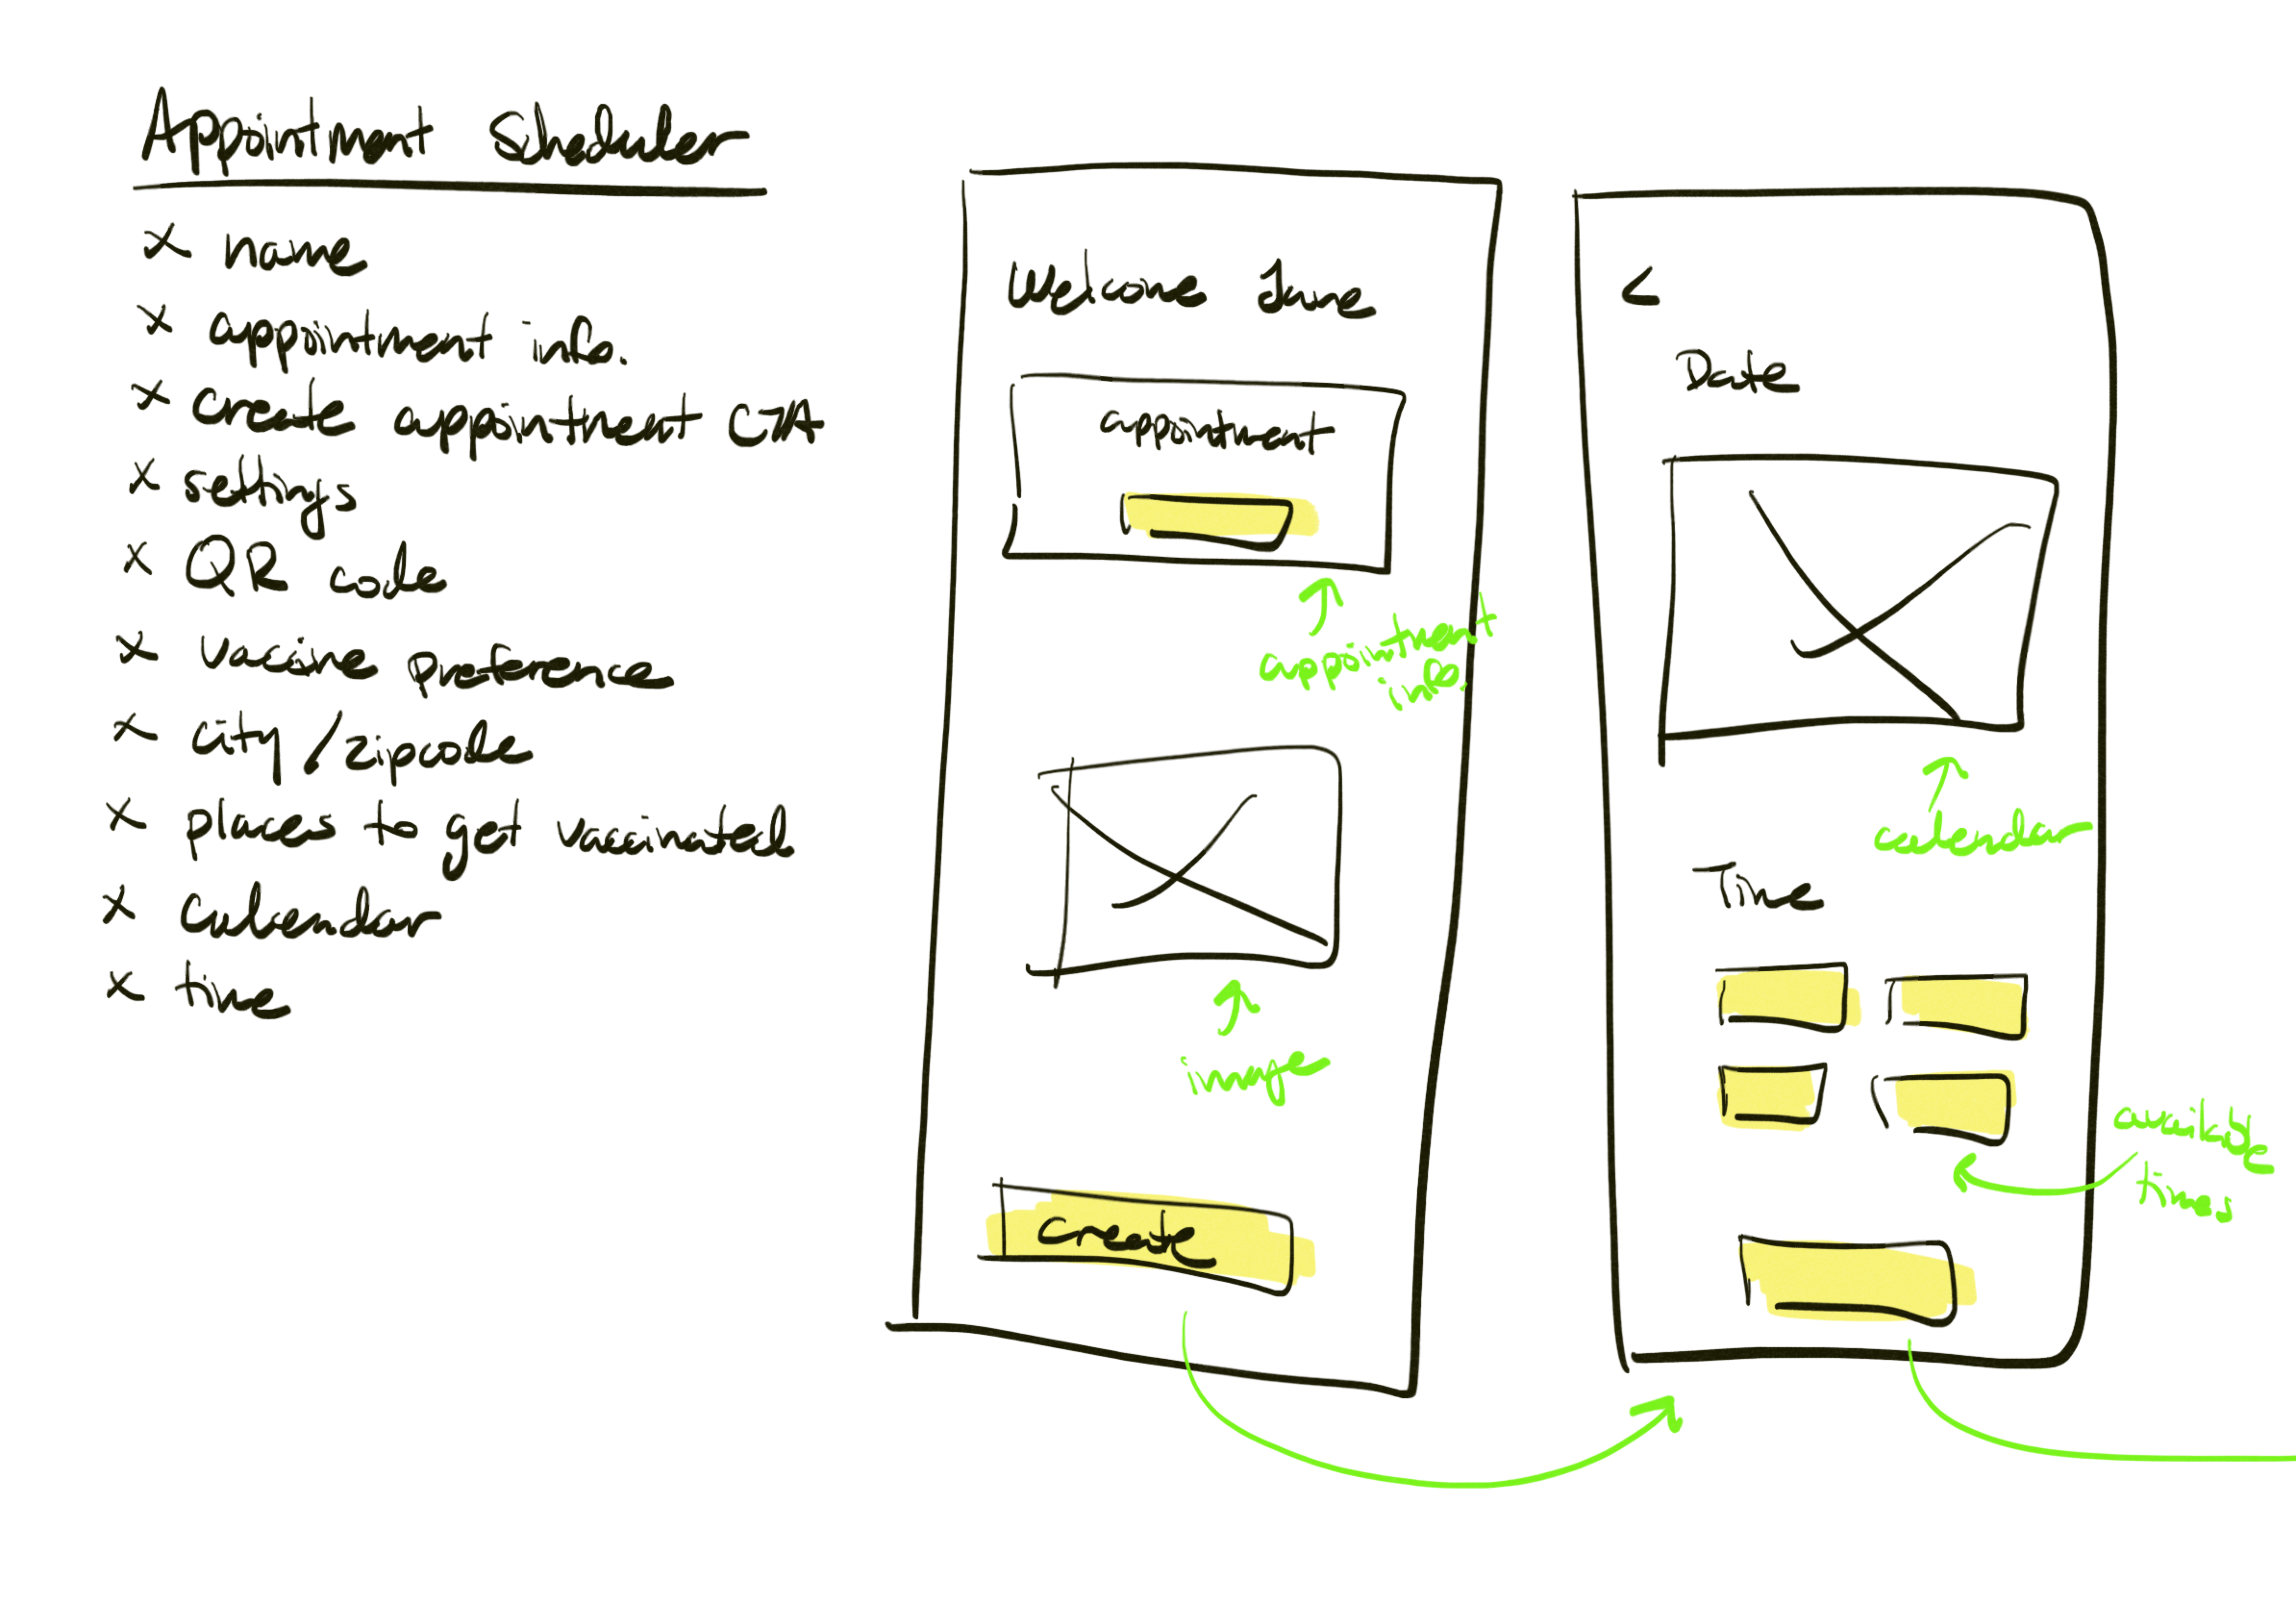 Appointment Scheduler
x name
x appointment info.
x create appointment CTA
x settings
x QR code
x vaccine preference
x city/zipcode
x places to get vaccinated
x calendar
x time
Welcome Jane
appointment
appointment
info.
image
create
<
Date
calendar
Time
available
times